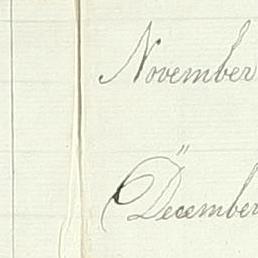 November
"
December